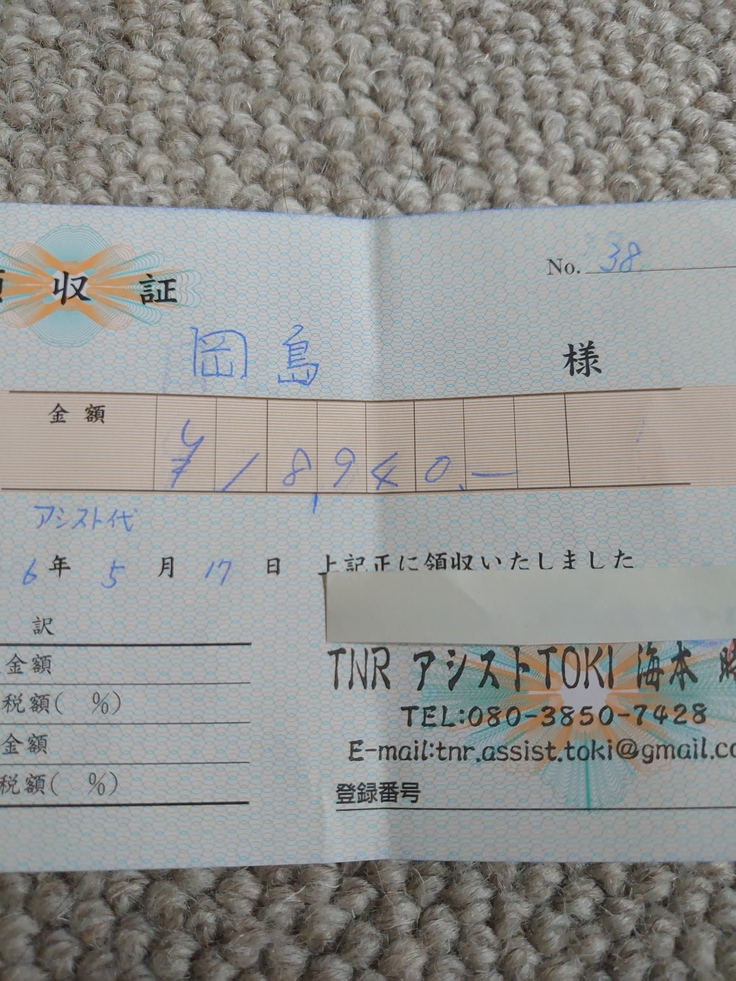 収 証
No. 38
岡島 様
金額 ¥18,940.—
アシスト代
6年 5月 17日 上記正に領収いたしました
訳
金額
税額( %)
金額
税額( %)
TNR アシストTOKI 海本
TEL:080-3850-7428
E-mail:tnr.assist.toki@gmail.co
登録番号